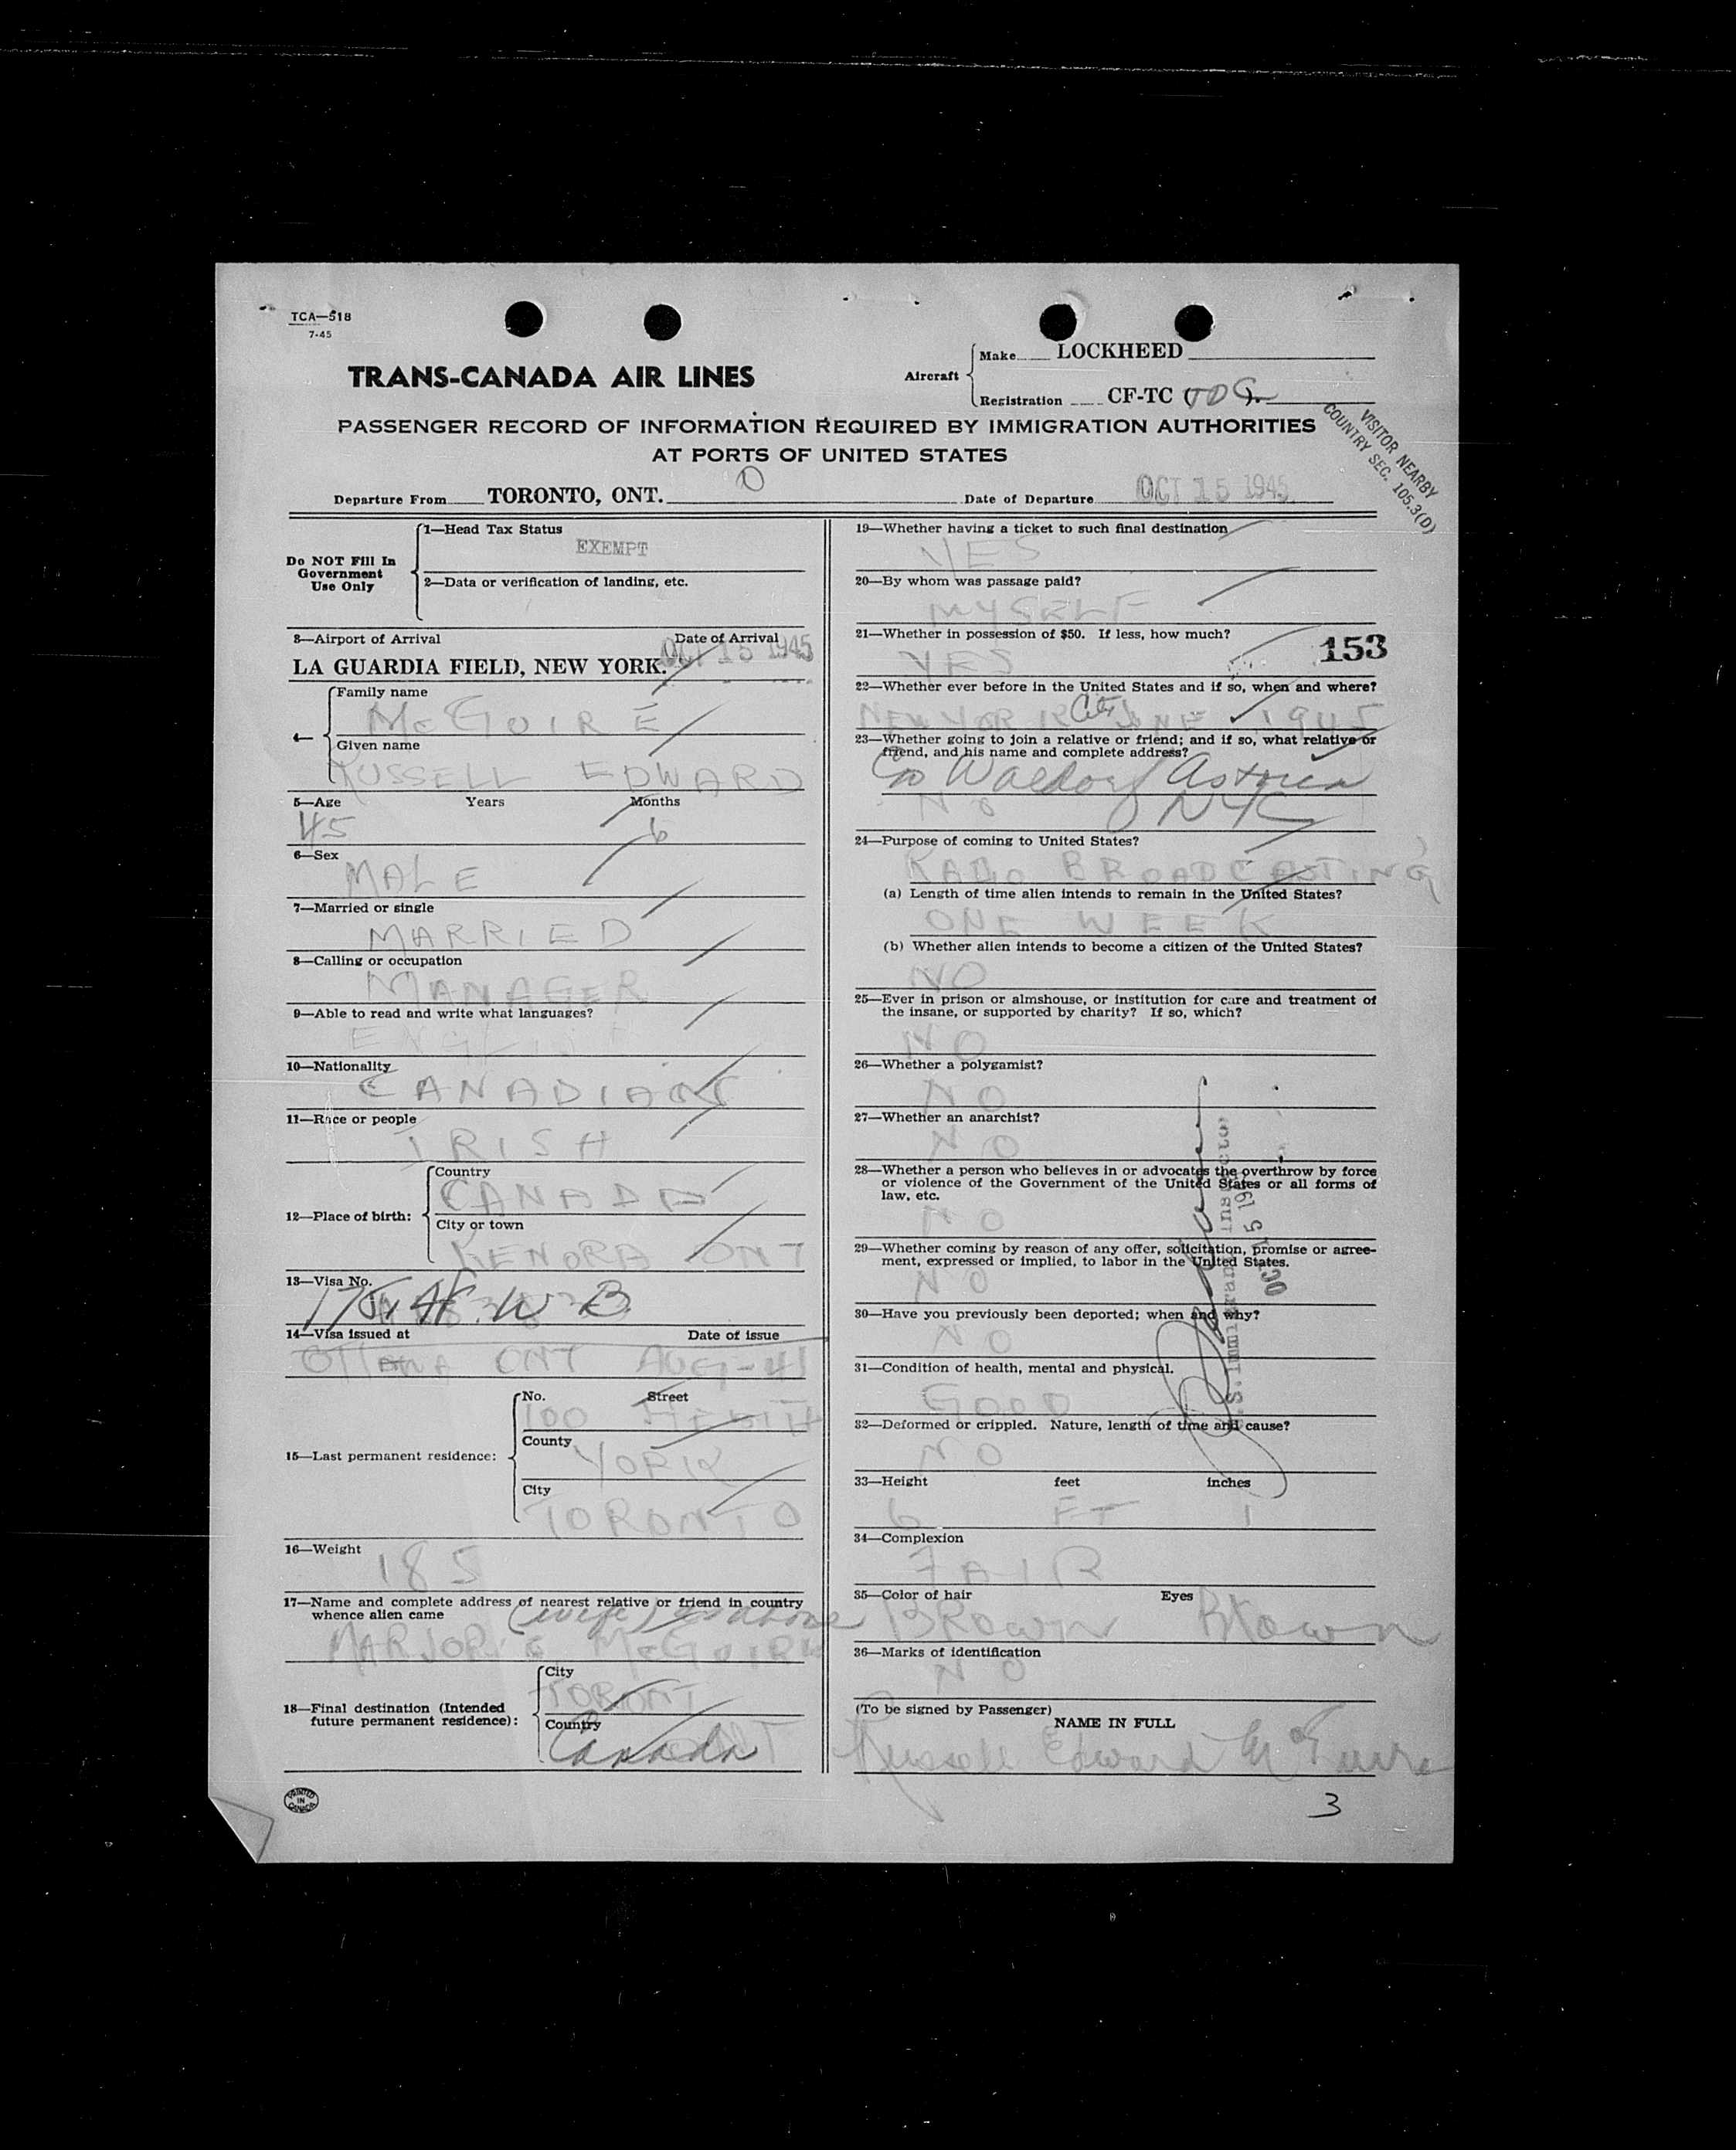 TCA—518
7-45
TRANS-CANADA AIR LINES
Aircraft
Make LOCKHEED
Registration CF-TC
PASSENGER RECORD OF INFORMATION REQUIRED BY IMMIGRATION AUTHORITIES
AT PORTS OF UNITED STATES
VISITOR NEARBY
COUNTRY SEC. 105.3(D)
Departure From TORONTO, ONT. Date of Departure OCT 15 1945
Do NOT Fill In
Government
Use Only
1—Head Tax Status
EXEMPT
2—Data or verification of landing, etc.
3—Airport of Arrival Date of Arrival
LA GUARDIA FIELD, NEW YORK. OCT 15 1945
4—
Family name
McGUIRE
Given name
RUSSELL EDWARD
5—Age Years Months
45 6
6—Sex
MALE
7—Married or single
MARRIED
8—Calling or occupation
MANAGER
9—Able to read and write what languages?
ENGLISH
10—Nationality
CANADIAN
11—Race or people
IRISH
12—Place of birth:
Country
CANADA
City or town
KENORA ONT
13—Visa No.
W B
14—Visa issued at Date of issue
OTTAWA ONT AUG-41
15—Last permanent residence:
No. Street
100
County
YORK
City
TORONTO
16—Weight
185
17—Name and complete address of nearest relative or friend in country
whence alien came
(wife) as above
MARJORIE McGUIRE
18—Final destination (Intended
future permanent residence):
City
TORONT
Country
Canada
19—Whether having a ticket to such final destination
YES
20—By whom was passage paid?
MYSELF
21—Whether in possession of $50. If less, how much?
YES
153
22—Whether ever before in the United States and if so, when and where?
NEW YORK City JUNE 1945
23—Whether going to join a relative or friend; and if so, what relative or
friend, and his name and complete address?
c/o Waldorf Astoria
NO NYC
24—Purpose of coming to United States?
RADIO BROADCASTING
(a) Length of time alien intends to remain in the United States?
ONE WEEK
(b) Whether alien intends to become a citizen of the United States?
NO
25—Ever in prison or almshouse, or institution for care and treatment of
the insane, or supported by charity? If so, which?
NO
26—Whether a polygamist?
NO
27—Whether an anarchist?
NO
28—Whether a person who believes in or advocates the overthrow by force
or violence of the Government of the United States or all forms of
law, etc.
NO
29—Whether coming by reason of any offer, solicitation, promise or agree-
ment, expressed or implied, to labor in the United States.
NO
30—Have you previously been deported; when and why?
NO
31—Condition of health, mental and physical.
GOOD
32—Deformed or crippled. Nature, length of time and cause?
NO
33—Height feet inches
6 FT 1
34—Complexion
FAIR
35—Color of hair Eyes
BROWN Brown
36—Marks of identification
NO
(To be signed by Passenger)
NAME IN FULL
Russell Edward McGuire
U.S. Immigrant Inspector
OCT 15
PRINTED
IN
CANADA
3